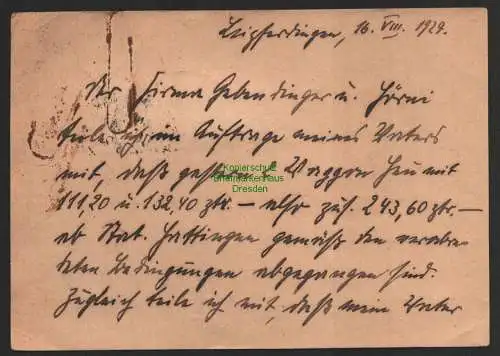 Leipferdingen, 16. VIII. 1929.
Der Firma Gebendinger u. Hörni
teile ich im Auftrage meines Vaters
mit, daß gestern 2 Waggon Heu mit
111,20 u. 132.40 ztr. – also zus. 243,60 ztr. –
ab Stat. Hattingen gemäß den verabre-
deten Bedingungen abgegangen sind.
Zugleich teile ich mit, daß mein Vater
Kopierschutz
Briefmarkenhaus
Dresden